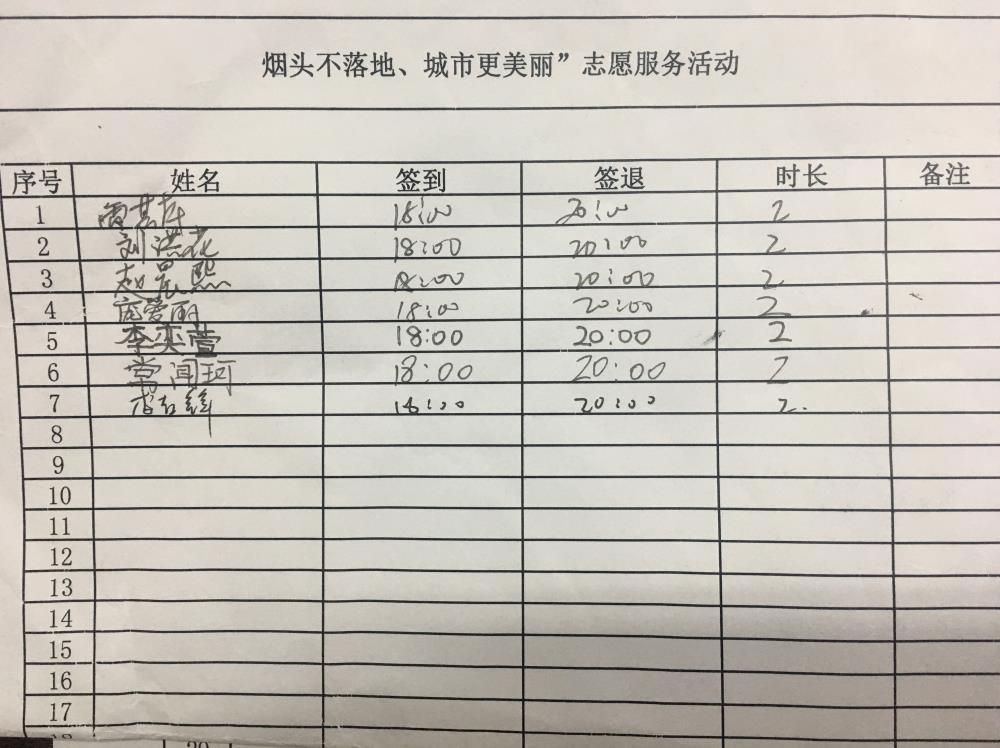 烟头不落地、城市更美丽”志愿服务活动
序号 姓名 签到 签退 时长 备注
1 18:00 20:00 2
2 刘洪花 18:00 20:00 2
3 赵晨熙 18:00 20:00 2
4 庞爱丽 18:00 20:00 2
5 李奕萱 18:00 20:00 2
6 常闻珂 18:00 20:00 2
7 18:00 20:00 2.
8
9
10
11
12
13
14
15
16
17